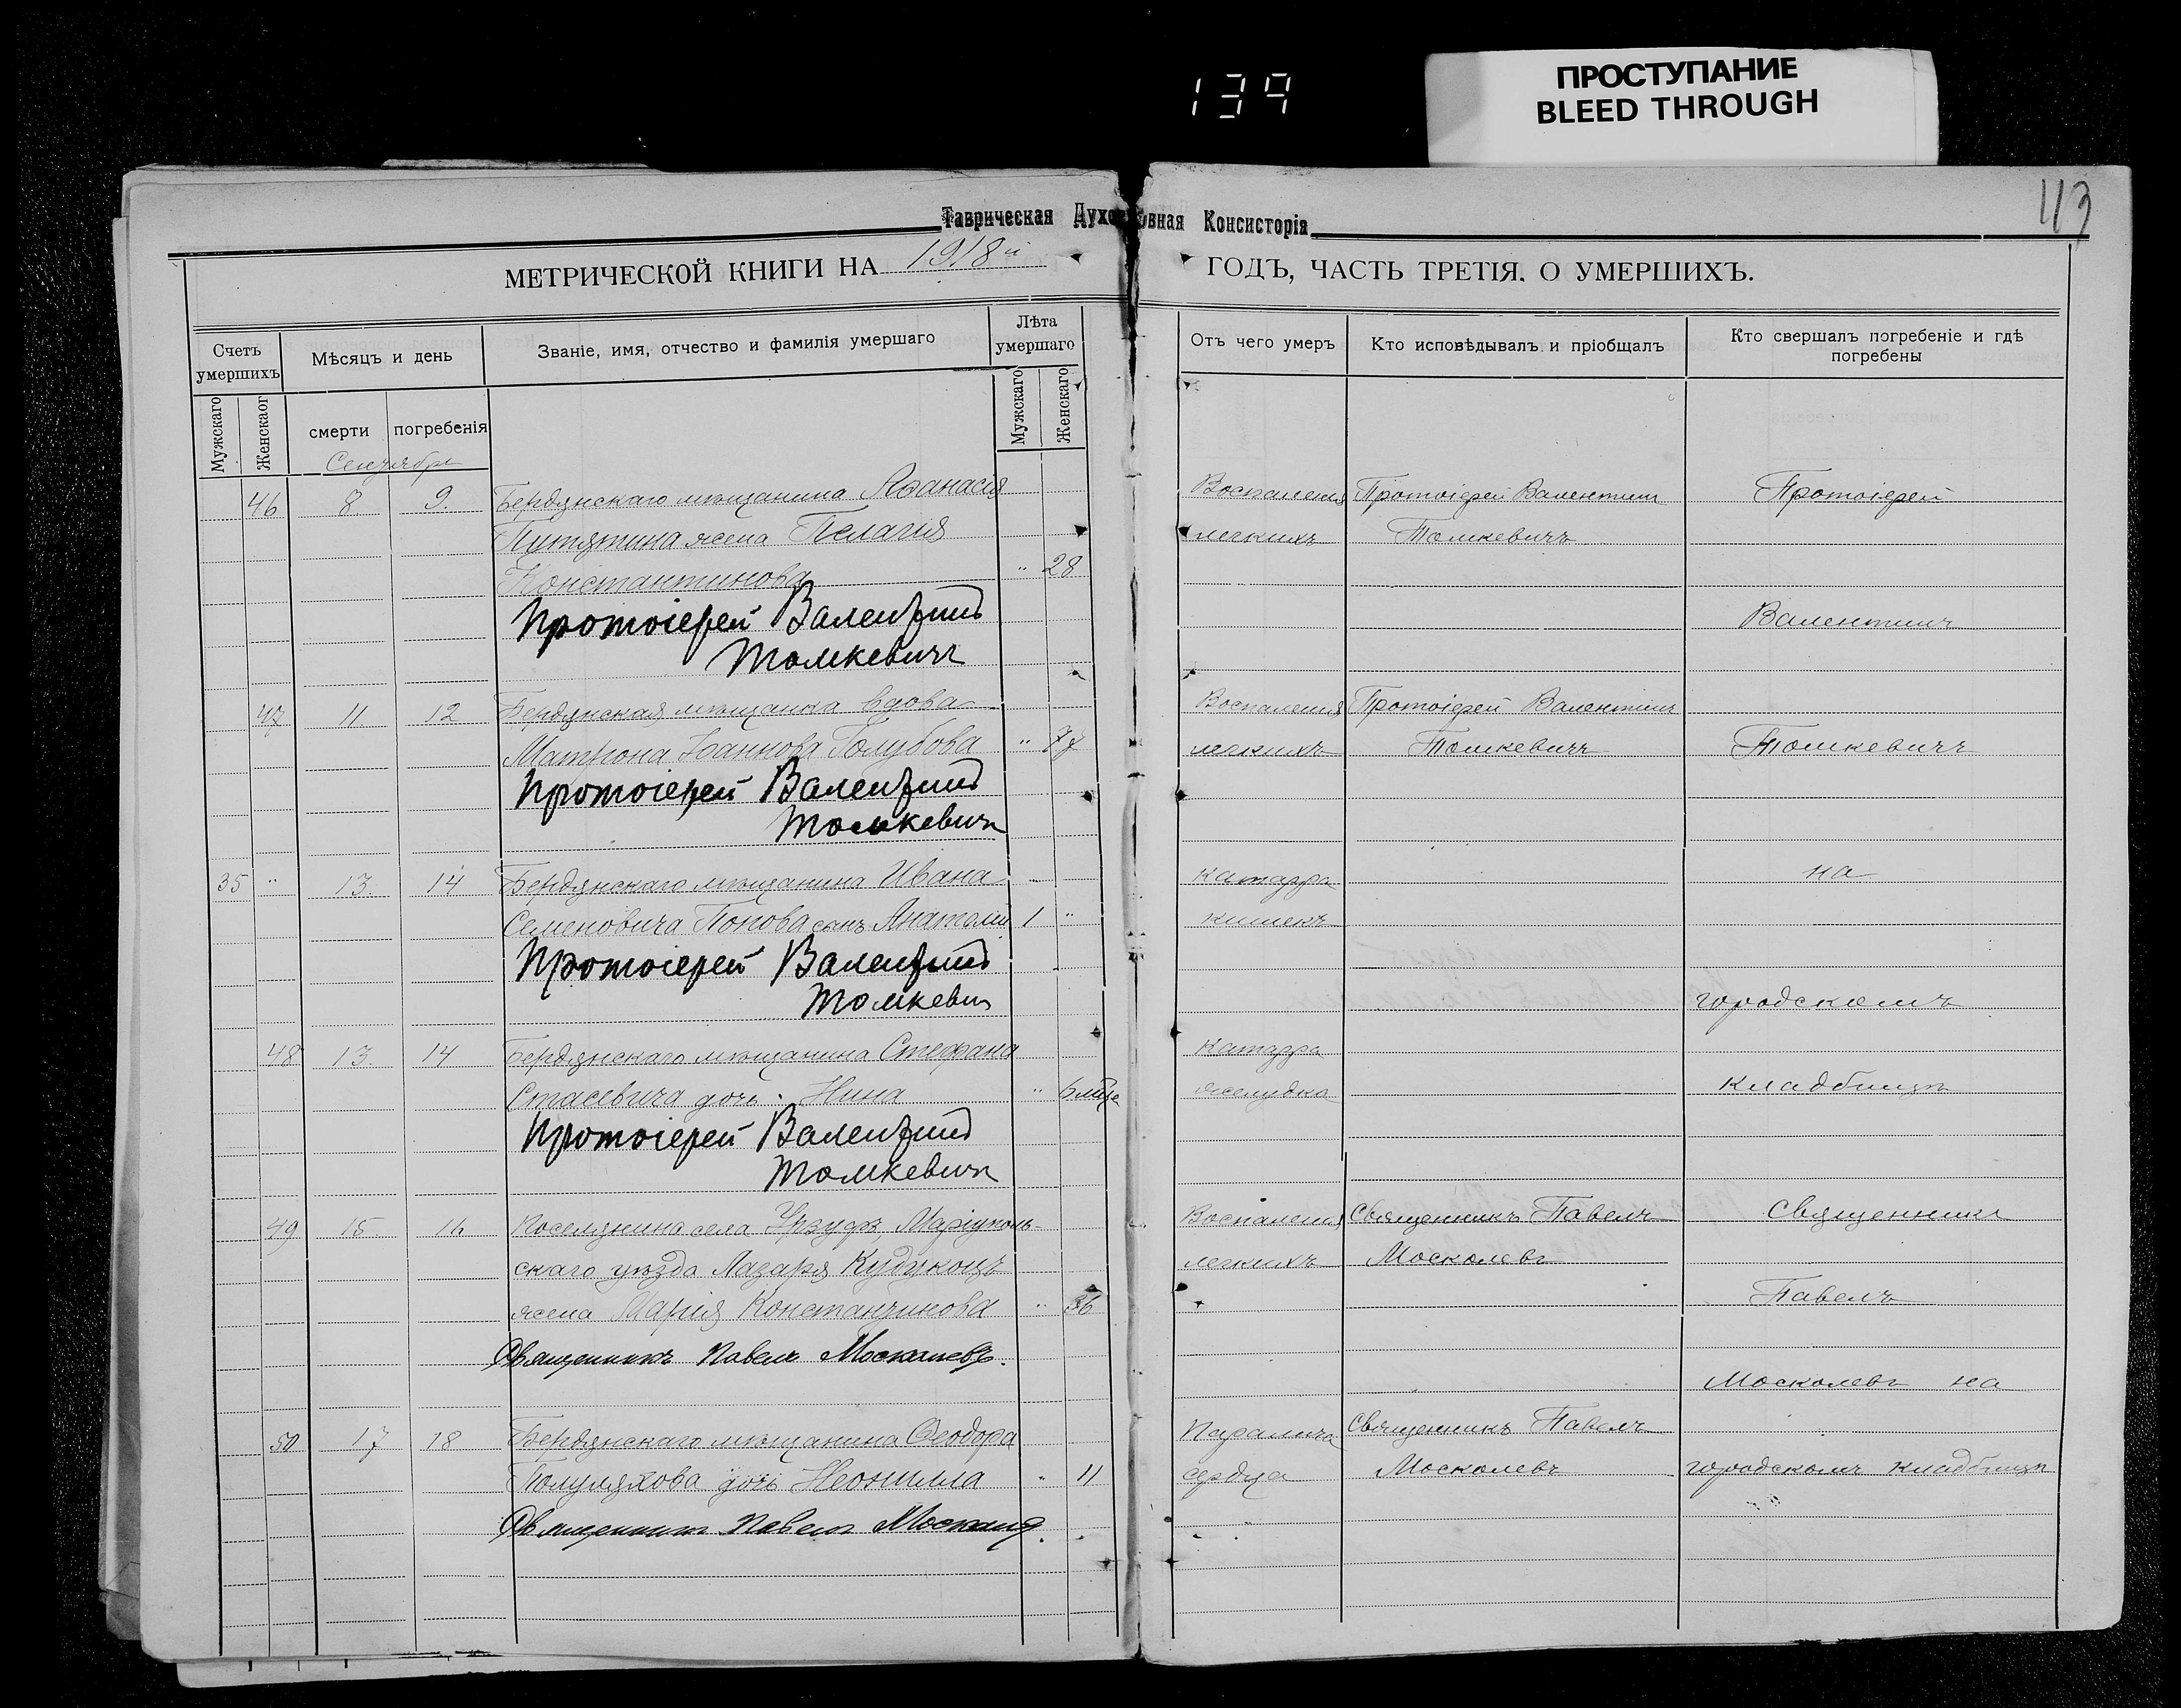 139
ПРОСТУПАНИЕ
BLEED THROUGH
113
Таврическая Духовная Консисторія
МЕТРИЧЕСКОЙ КНИГИ НА 1918й ГОДЪ, ЧАСТЬ ТРЕТІЯ. О УМЕРШИХЪ.
Счетъ умершихъ
Мѣсяцъ и день
Званіе, имя, отчество и фамилія умершаго
Лѣта умершаго
Отъ чего умеръ
Кто исповѣдывалъ и пріобщалъ
Кто свершалъ погребеніе и гдѣ погребены
Мужскаго Женскаог смерти погребенія Мужскаго Женскаго
Сентября
46 8 9. Бердянскаго мѣщанина Аѳанасія Воспаленія Протоіерей Валентинъ Протоіерей
Путятина жена Пелагія легкихъ Томкевичъ
Константинова " 28
Протоіерей Валентинъ Валентинъ
Томкевичъ
47 11 12 Бердянская мѣщанка вдова Воспаленія Протоіерей Валентинъ
Матрона Іоаннова Голубова " 77 легкихъ Томкевичъ Томкевичъ
Протоіерей Валентинъ
Томкевичъ
35 " 13 14 Бердянскаго мѣщанина Ивана катарра на
Семеновича Попова сынъ Анатолій 1 " кишекъ
Протоіерей Валентинъ
Томкевич городскомъ
48 13. 14 Бердянскаго мѣщанина Стефана катарра
Стасевича дочь Нина " 6 мѣс желудка кладбищѣ
Протоіерей Валентинъ
Томкевичъ
49 15 16 Поселянина села Урзуфъ, Маріуполь- Воспаленія Священникъ Павелъ Священникъ
скаго уѣзда Лазаря легкихъ Москалевъ
жена Марія Константинова " 36 Павелъ
Священникъ Павелъ Москалевъ.
Москалевъ на
50 17 18 Бердянскаго мѣщанина Ѳеодора Паралича Священникъ Павелъ
Полуляхова дочь Неонилла " 11 сердца Москалевъ городскомъ кладбищѣ
Священникъ Павелъ Москалевъ.